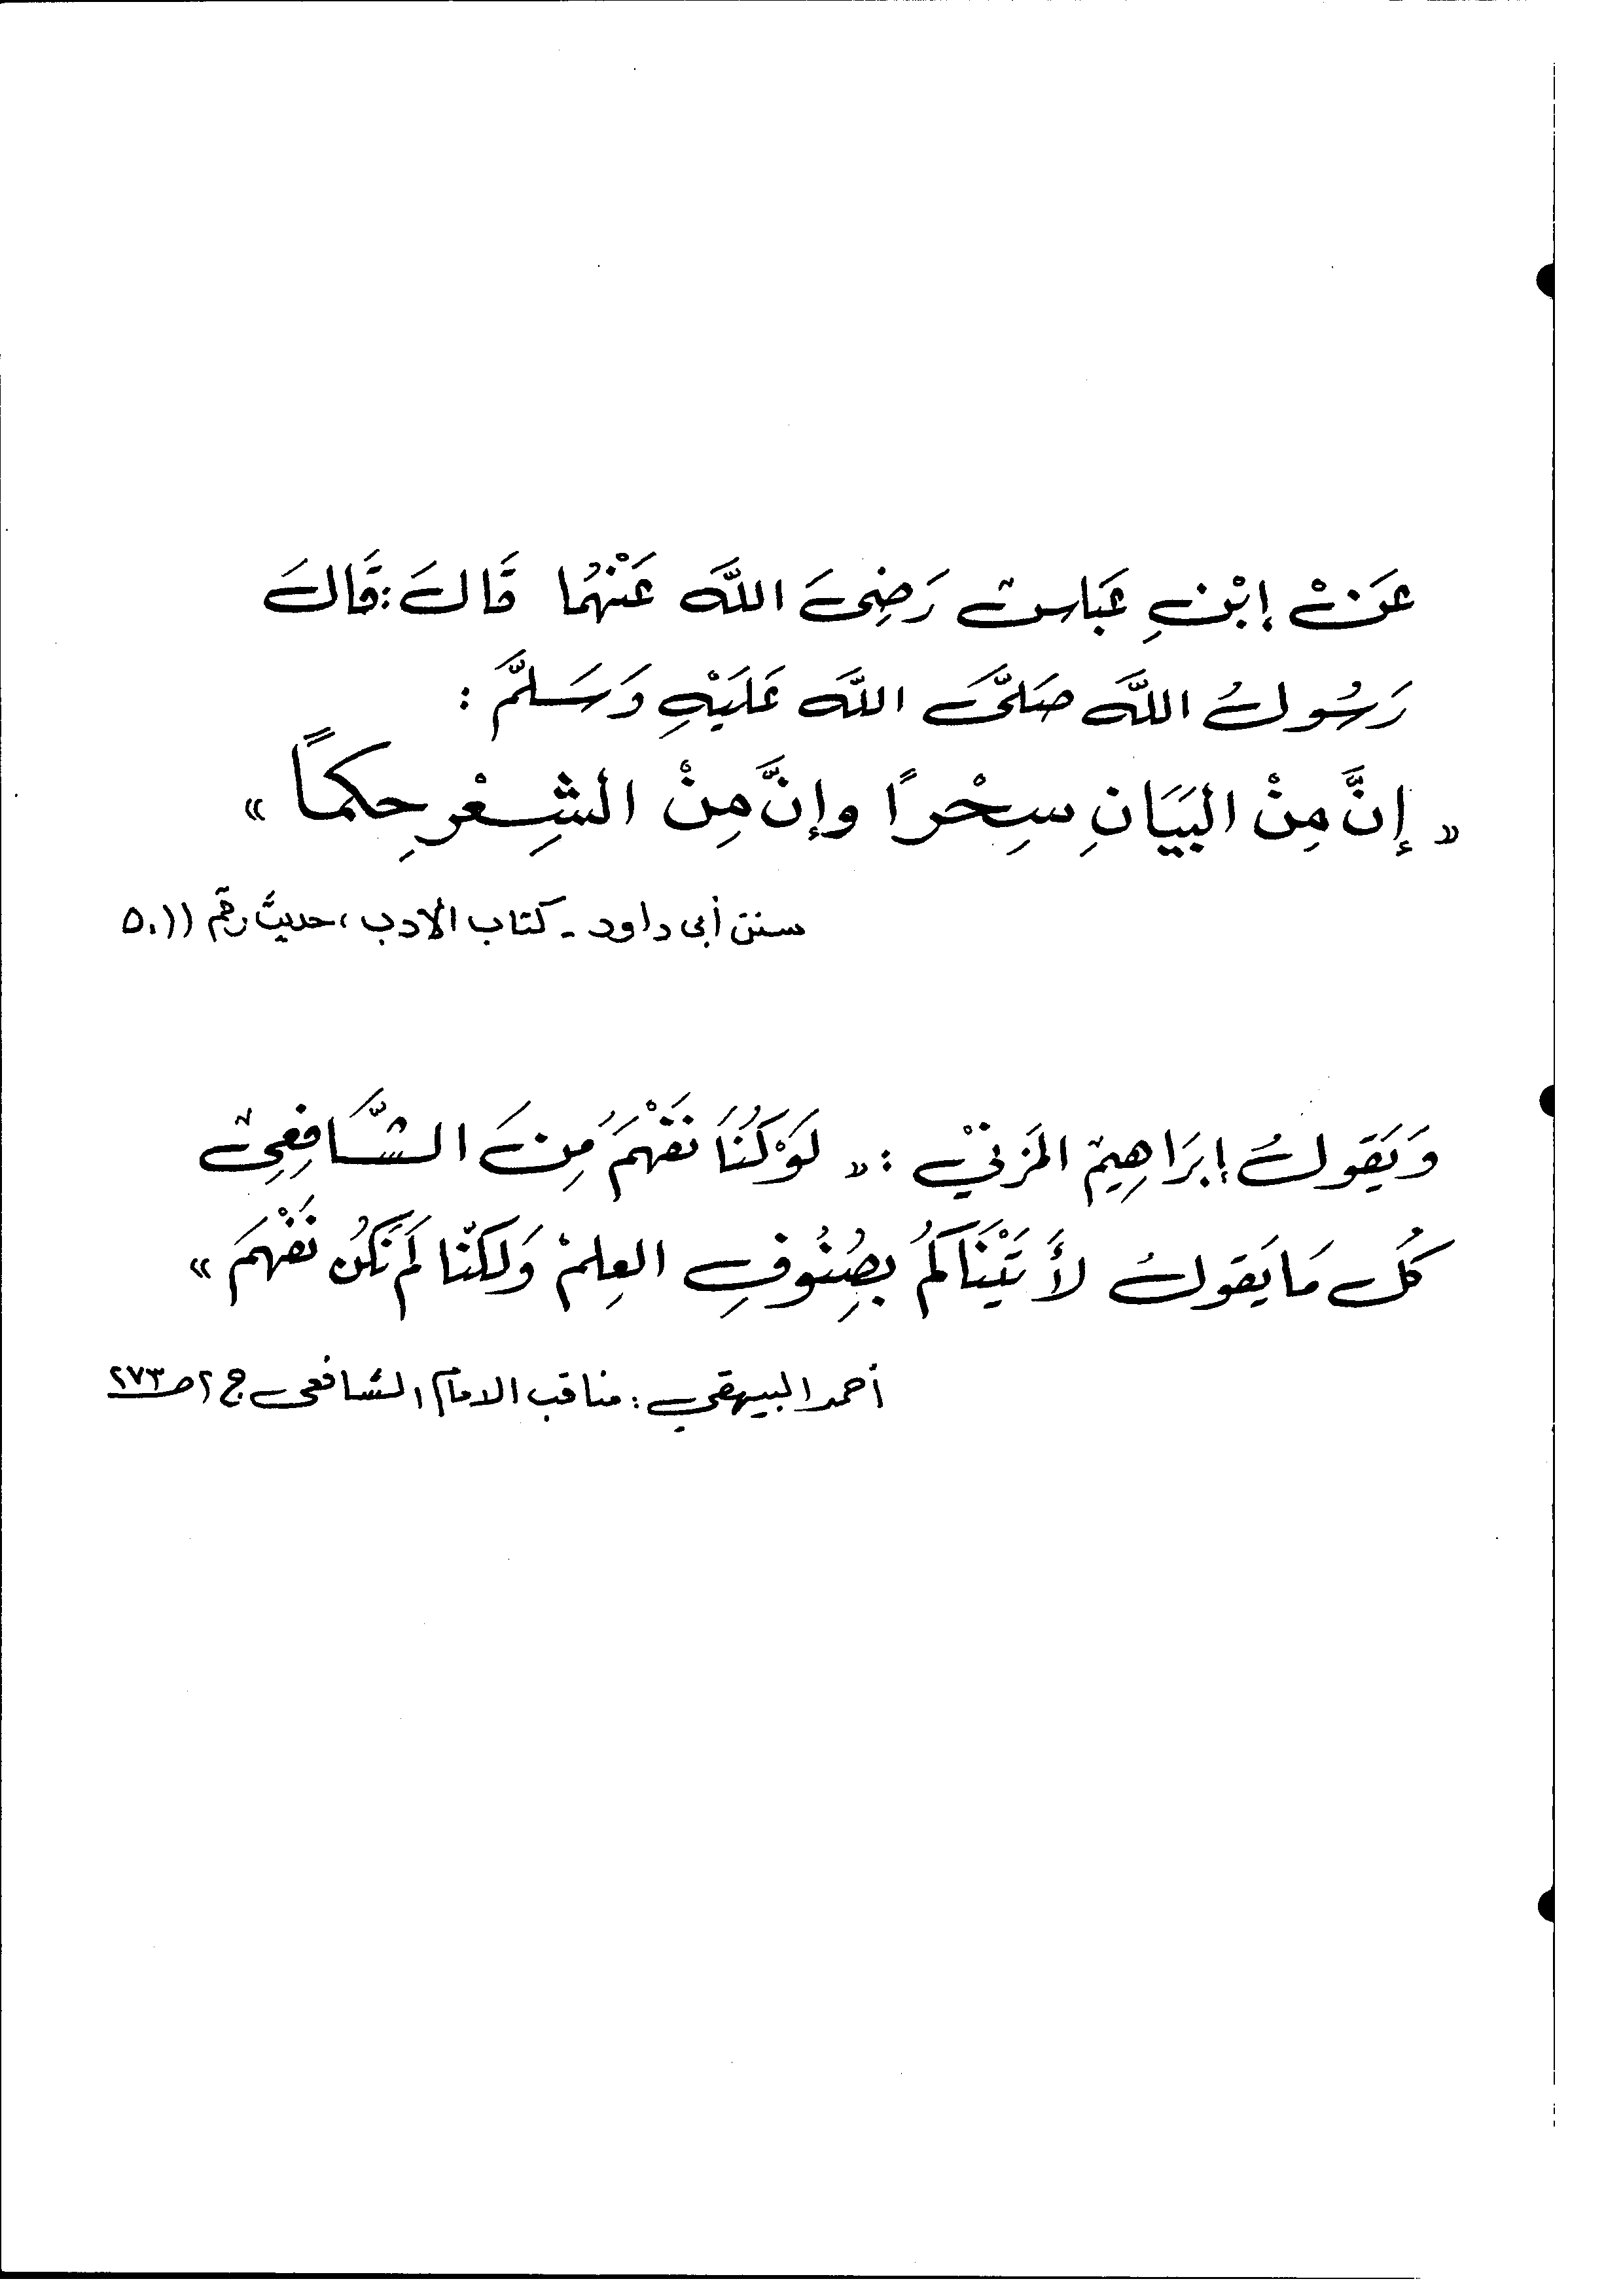 عَنْ إبْنِ عَبَاس رَضِىَ اللَّه عَنْهُمَا قَالَ : قَالَ
رَسُولُ اللَّه صَلَّى اللَّه عَلَيْهِ وَسَلَّمَ :
« إنَّ مِنْ البَيَانِ سِحْرًا وإنَّ مِنْ الشِعْرِ حِكمَاً »
سنن أبى داود - كتاب الأدب ، حديث رقم ٥٠١١
وَيَقولُ إبرَاهِيم المَزنيْ : « لَوْ كُنَا نَفْهَمَ مِنَ الشَّافِعِى
كُل مَا يَقولُ لأَتَيْنَاكُم بِصِنُوفِ العِلمْ وَلكنّا لَم نَكُن نَفْهَمَ »
أحمد البيهقي : مناقب الامام الشافعى ج ٢ صـ ٢٧٣